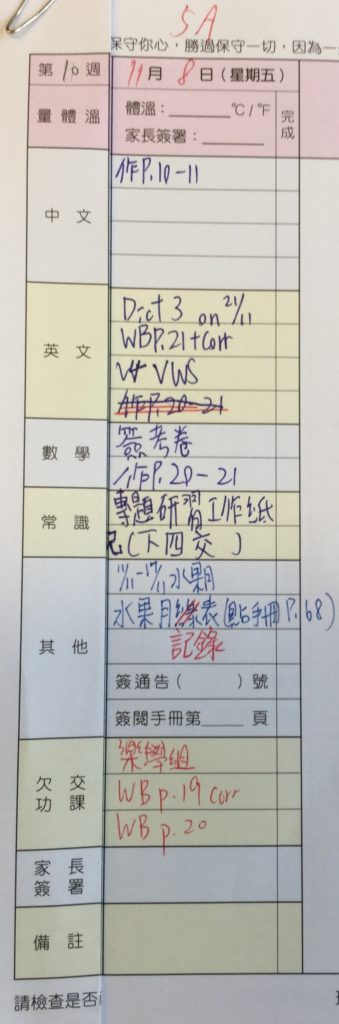 5A
保守你心，勝過保守一切，因為一
第10週 11月8日(星期五)
量體溫 體溫：______°C/°F 完成
家長簽署：______
中文 作P.10-11
英文 Dict 3 on 21/11
WBP.21+Corr
V4 VWS
作P.20-21
數學 簽考卷
作P.20-21
常識 專題研習工作紙
(下四交)
其他 水果月
水果月表(貼手冊P.68)
記錄
簽通告( )號
簽閱手冊第____頁
欠交功課 樂學組
WB p.19 corr
WB p.20
家長簽署
備註
請檢查是否